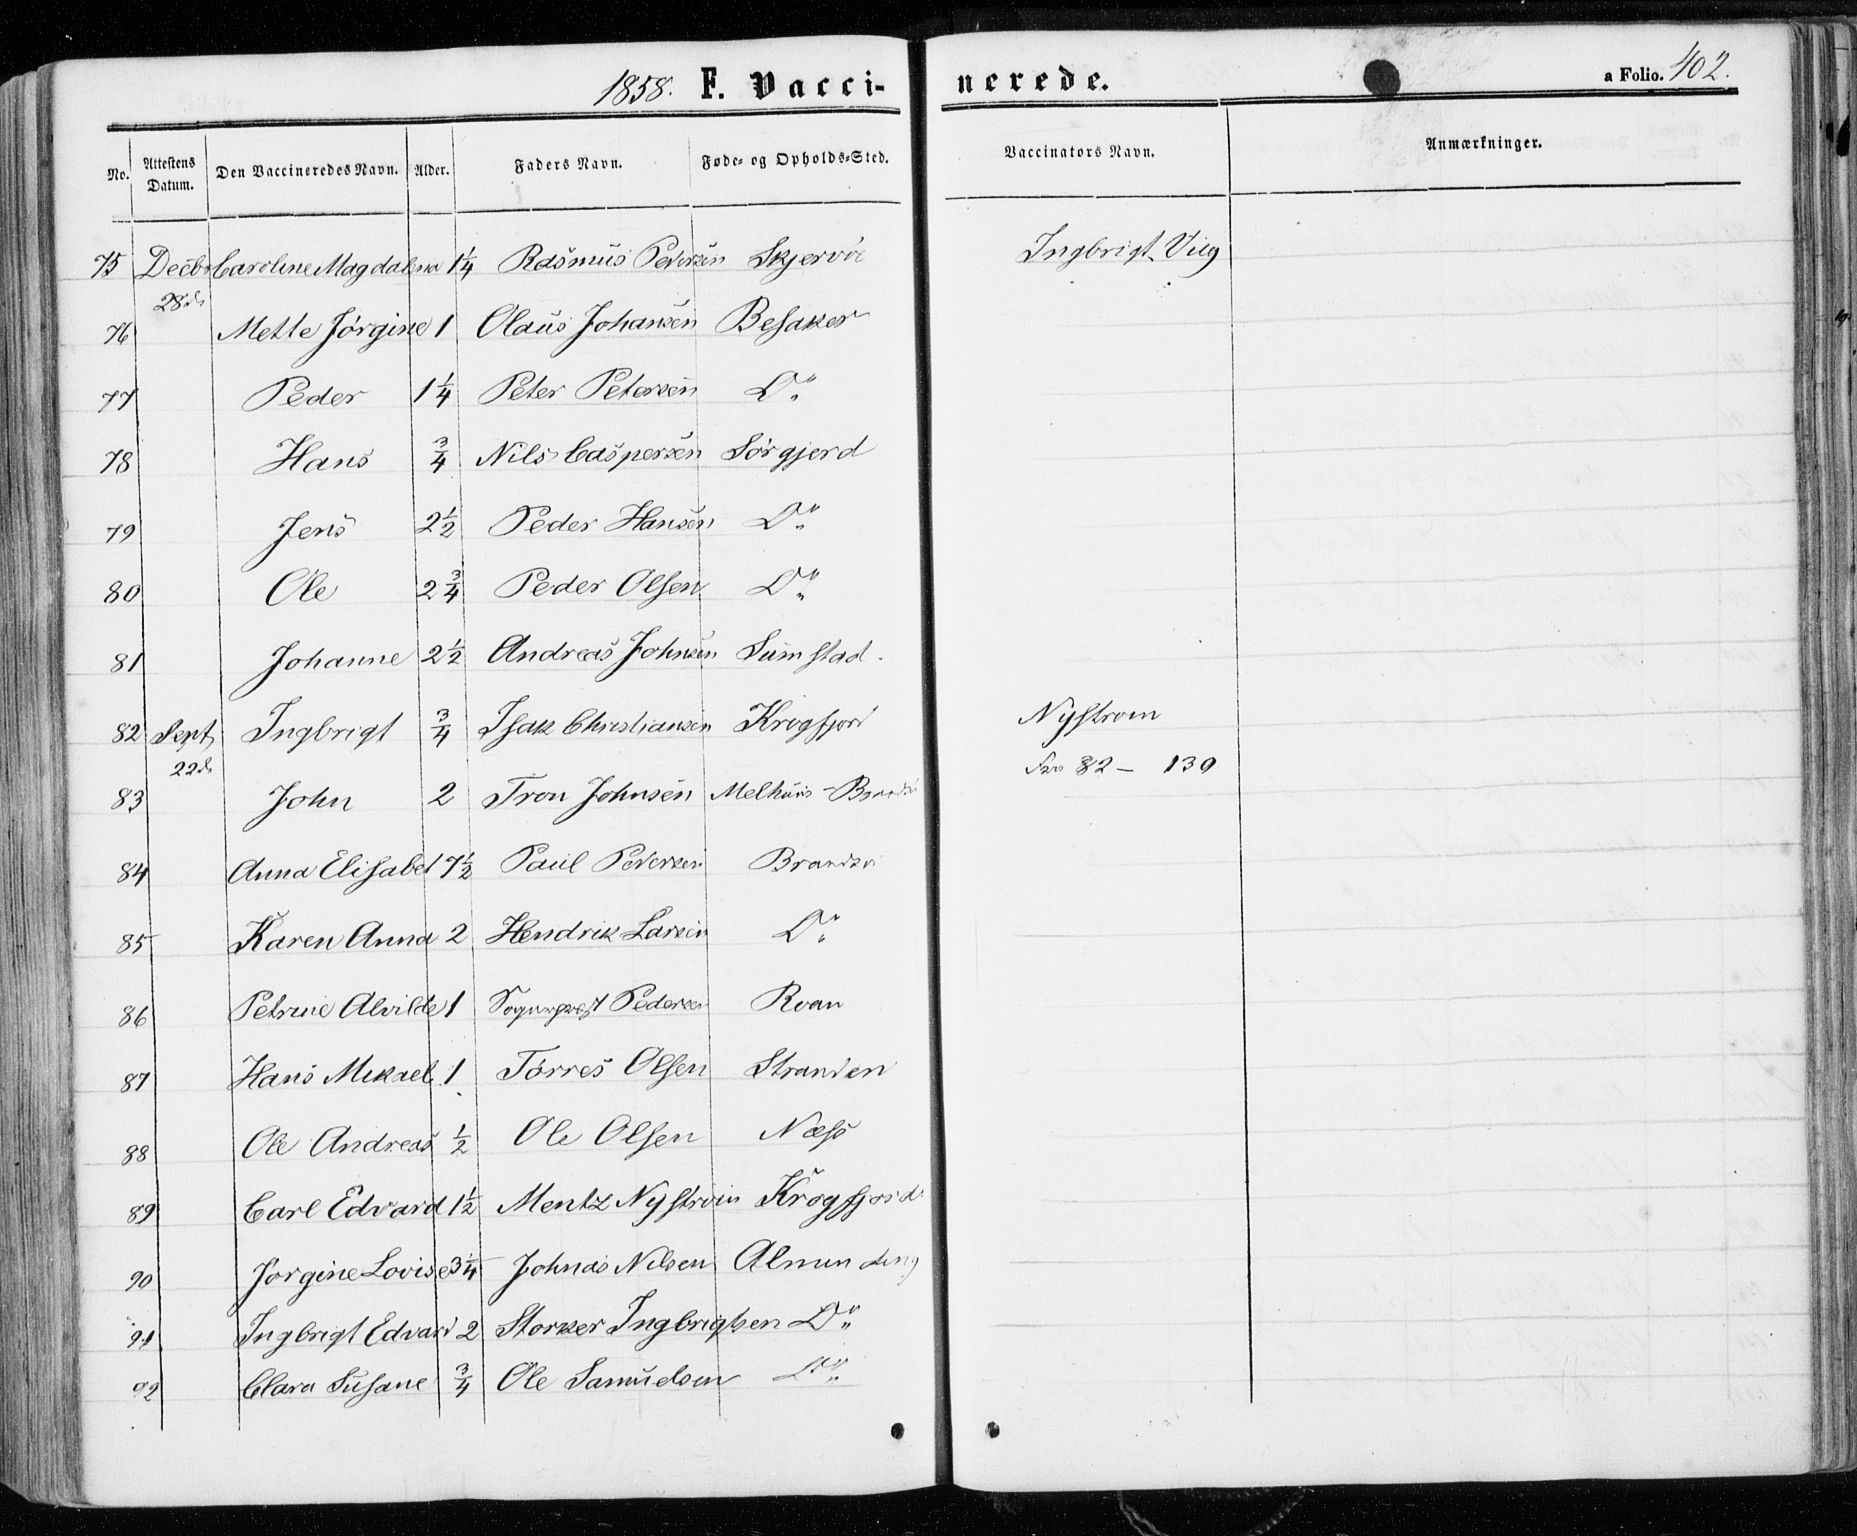 1858. F. Vacci- nerede. a Folio. 402.
No. Attestens Datum. Den Vaccineredes Navn. Alder. Faders Navn. Føde- og Opholds-Sted. Vaccinators Navn. Anmærkninger.
75 Decbr Caroline Magdalena 1 1/4 Rasmus Pedersen Skjervöe Ingbrigt Viig
28de
76 Mette Jörgine 1 Olaus Johansen Besaker
77 Peder 1 1/4 Peter Petersen Do
78 Hans 3/4 Nils Caspersen Sörgjerd
79 Jens 2 1/2 Peder Hansen Do
80 Ole 2 3/4 Peder Olsen Do
81 Johanne 2 1/2 Andreas Johnsen Sumstad.
82 Sept Ingbrigt 3/4 Isak Christiansen Krogfjord Nystrom
22de Fra 82 – 139
83 John 2 Tron Johnsen Melhuus -
84 Anna Elisabet 7 1/2 Paul Pedersen
85 Karen Anna 2 Hendrik Larsen Do
86 Petrine Alvilde 1 Sogneprest Pedersen Roan
87 Hans Mikael 1 Törres Olsen Stranden
88 Ole Andreas 1/2 Ole Olsen Næss
89 Carl Edvard 1 1/2 Mentz Nystrom Krogfjord
90 Jörgine Lovise 3/4 Johnas Nilsen Almunding
91 Ingbrigt Edvard 2 Storker Ingbrigtsen Do
92 Clara Susane 3/4 Ole Samuelsen Do